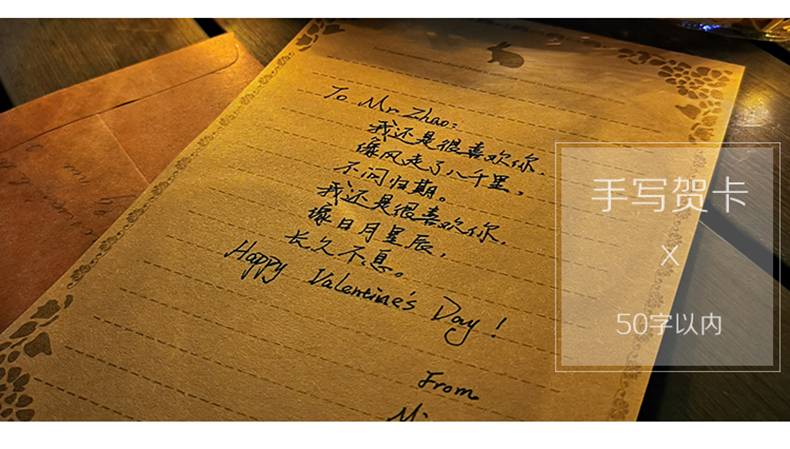 To Mr. Zhao:
我还是很喜欢你,
像风走了八千里,
不问归期。
我还是很喜欢你,
像日月星辰,
长久不息。
Happy Valentine's Day!
From
手写贺卡
X
50字以内